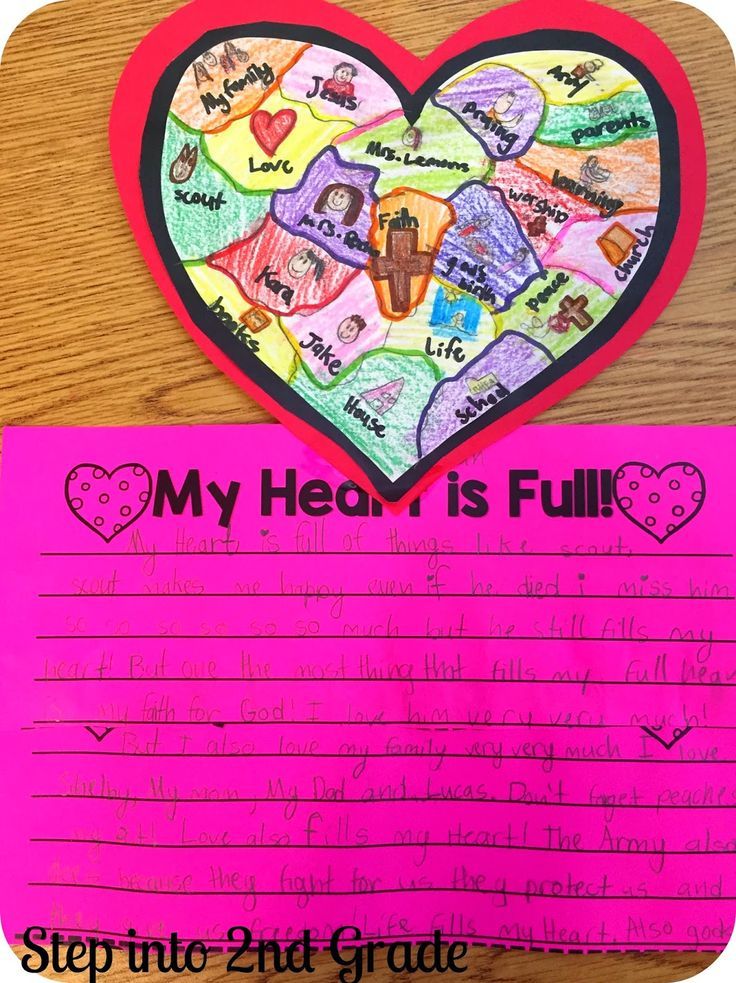 My family
Jesus
Love
scout
Mrs. Lemons
praying
Army
parents
learning
worship
church
Mrs.
Faith
gods birth
peace
Kara
books
Jake
Life
House
School
My Heart is Full!
My Heart is full of things like scout,
scout makes me happy even if he died i miss him
so so so so so so much but he still fills my
heart! But one the most thing that fills my full hear
is my faith for God! I love him very very much!
But I also love my family very very much I love
Shelby, My mom, My Dad and Lucas. Don't forget peaches
my Love also fills my Heart! The Army also
because they fight for us they protect us and
they give us freedom! Life fills my Heart. Also gods
Step into 2nd Grade